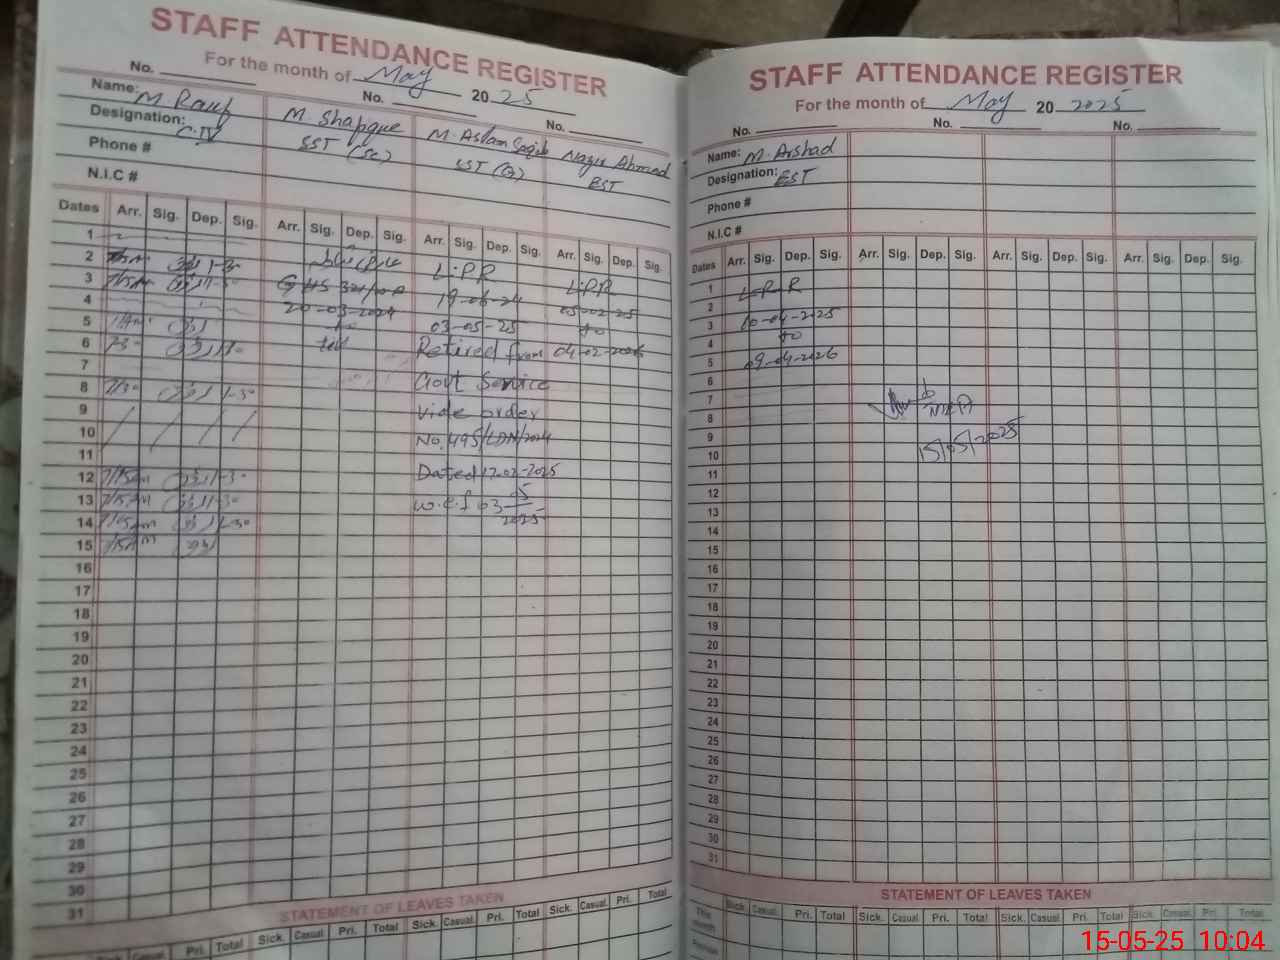 STAFF ATTENDANCE REGISTER
For the month of May 2025
No. No. No.
Name: M. Rauf M. Shafique M. Aslam Nazir Ahmad
Designation: C-IV SST (Sc) SST (G) EST
Phone #
N.I.C #
Dates Arr. Sig. Dep. Sig. Arr. Sig. Dep. Sig. Arr. Sig. Dep. Sig. Arr. Sig. Dep. Sig.
1
2 L.P.R L.P.R
3 GHS 19-06-24 05-02-25
4 20-03-2024 to
5 03-05-25 04-02-2026
6 7-30 Retired from
7 Govt Service
8 7/30 1-30 Vide order
9 No. 495/LDN/2024
10 Dated 17-02-2025
11 w.e.f 03-05-2025
12 7/15am 1-30
13 7/15am 1-30
14 7/15am 1-30
15 7/15am
16
17
18
19
20
21
22
23
24
25
26
27
28
29
30
31
STATEMENT OF LEAVES TAKEN
Sick. Casual. Pri. Total Sick. Casual. Pri. Total Sick. Casual. Pri. Total Sick. Casual. Pri. Total
STAFF ATTENDANCE REGISTER
For the month of May 20 2025
No. No. No.
Name: M. Arshad
Designation: EST
Phone #
N.I.C #
Dates Arr. Sig. Dep. Sig. Arr. Sig. Dep. Sig. Arr. Sig. Dep. Sig. Arr. Sig. Dep. Sig.
1 L.P.R
2 10-04-2025
3 to
4 09-04-2026
5
6
7
8 MEA
9 15/05/2025
10
11
12
13
14
15
16
17
18
19
20
21
22
23
24
25
26
27
28
29
30
31
STATEMENT OF LEAVES TAKEN
This month Sick. Casual. Pri. Total Sick. Casual Pri. Total Sick. Casual. Pri. Total Sick. Casual. Pri. Total
Previous
15-05-25 10:04